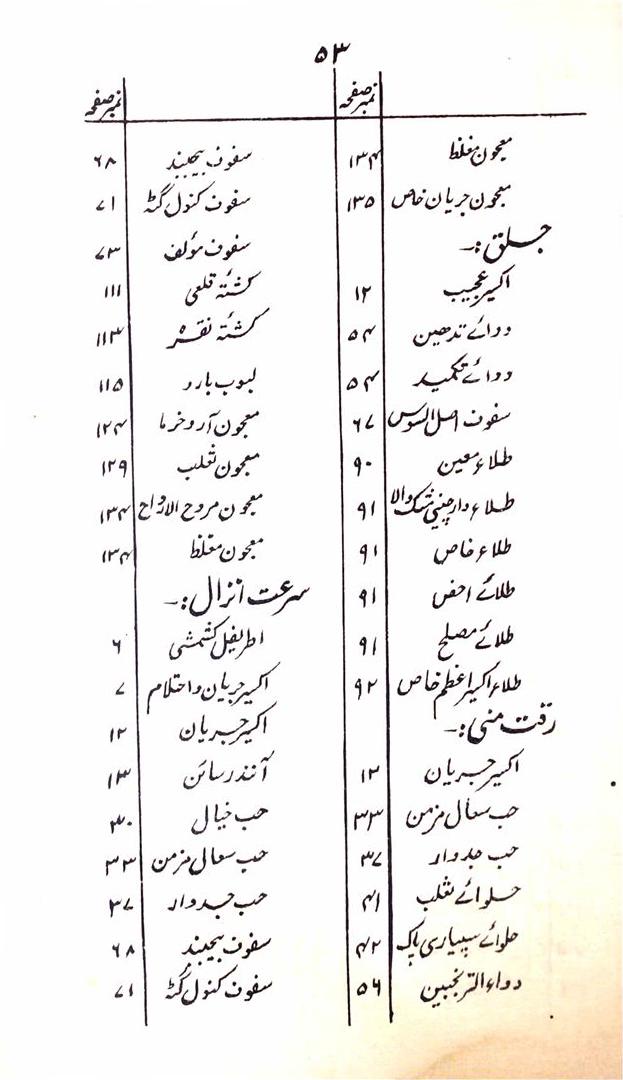 ۵۳
نمبر صفحہ
معجون مغلظ ۱۳۴
معجون جریان خاص ۱۳۵
جلق :۔
اکسیر عجیب ۱۲
دوائے تدھین ۵۴
دوائے تکمید ۵۴
سفوف اصل السوس ۶۷
طلاء معین ۹۰
طلاء دارچینی مشک والا ۹۱
طلاء خاص ۹۱
طلائے احض ۹۱
طلائے مصلح ۹۱
طلاء اکسیر اعظم خاص ۹۲
رقت منی :۔
اکسیر جریان ۱۲
حب سعال مزمن ۳۳
حب جدوار ۳۷
حلوائے ثعلب ۴۱
حلوائے سپیاری پاک ۴۲
دواء الترنجبین ۵۶
نمبر صفحہ
سفوف بیجبند ۶۸
سفوف کنول گٹہ ۷۱
سفوف مؤلف ۷۳
کشتۂ قلعی ۱۱۱
کشتۂ نقرہ ۱۱۳
لبوب بارد ۱۱۵
معجون آرد خرما ۱۲۴
معجون ثعلب ۱۲۹
معجون مروح الارواح ۱۳۴
معجون مغلظ ۱۳۴
سرعت انزال :۔
اطریفل کشمشی ۶
اکسیر جریان و احتلام ۷
اکسیر جریان ۱۲
آنند رسائن ۱۳
حب خیال ۳۰
حب سعال مزمن ۳۳
حب جدوار ۳۷
سفوف بیجبند ۶۸
سفوف کنول گٹہ ۷۱